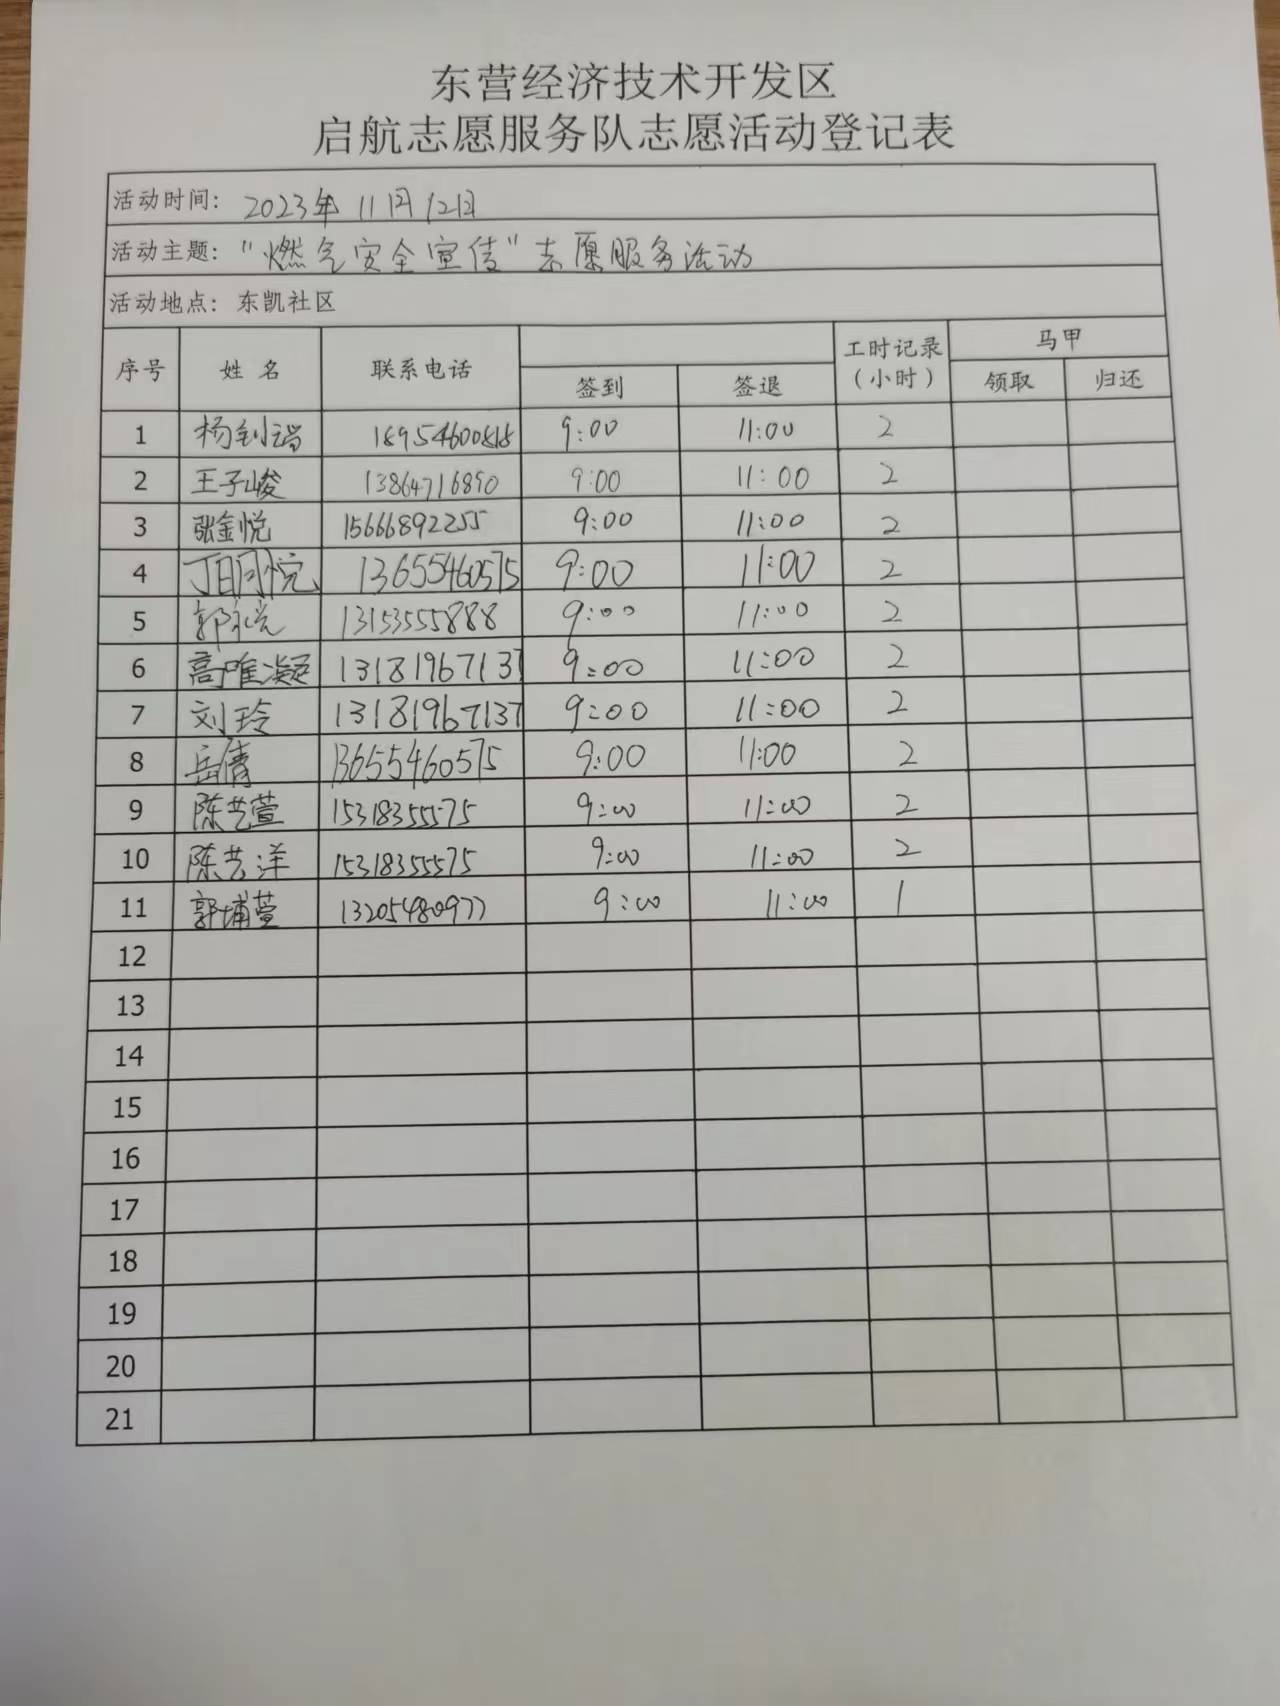 东营经济技术开发区
启航志愿服务队志愿活动登记表
活动时间: 2023年11月12日
活动主题: "燃气安全宣传"志愿服务活动
活动地点: 东凯社区
序号 姓名 联系电话 签到 签退 工时记录(小时) 马甲 领取 归还
1 杨钊瑞 18954600818 9:00 11:00 2
2 王子峻 13864716890 9:00 11:00 2
3 张金悦 15666892255 9:00 11:00 2
4 丁玥悦 13655460575 9:00 11:00 2
5 郭 13153555888 9:00 11:00 2
6 高唯凝 13181967137 9:00 11:00 2
7 刘玲 13181967137 9:00 11:00 2
8 岳倩 13655460575 9:00 11:00 2
9 陈艺萱 15318355575 9:00 11:00 2
10 陈艺洋 15318355575 9:00 11:00 2
11 郭埔萱 13205480977 9:00 11:00 1
12
13
14
15
16
17
18
19
20
21